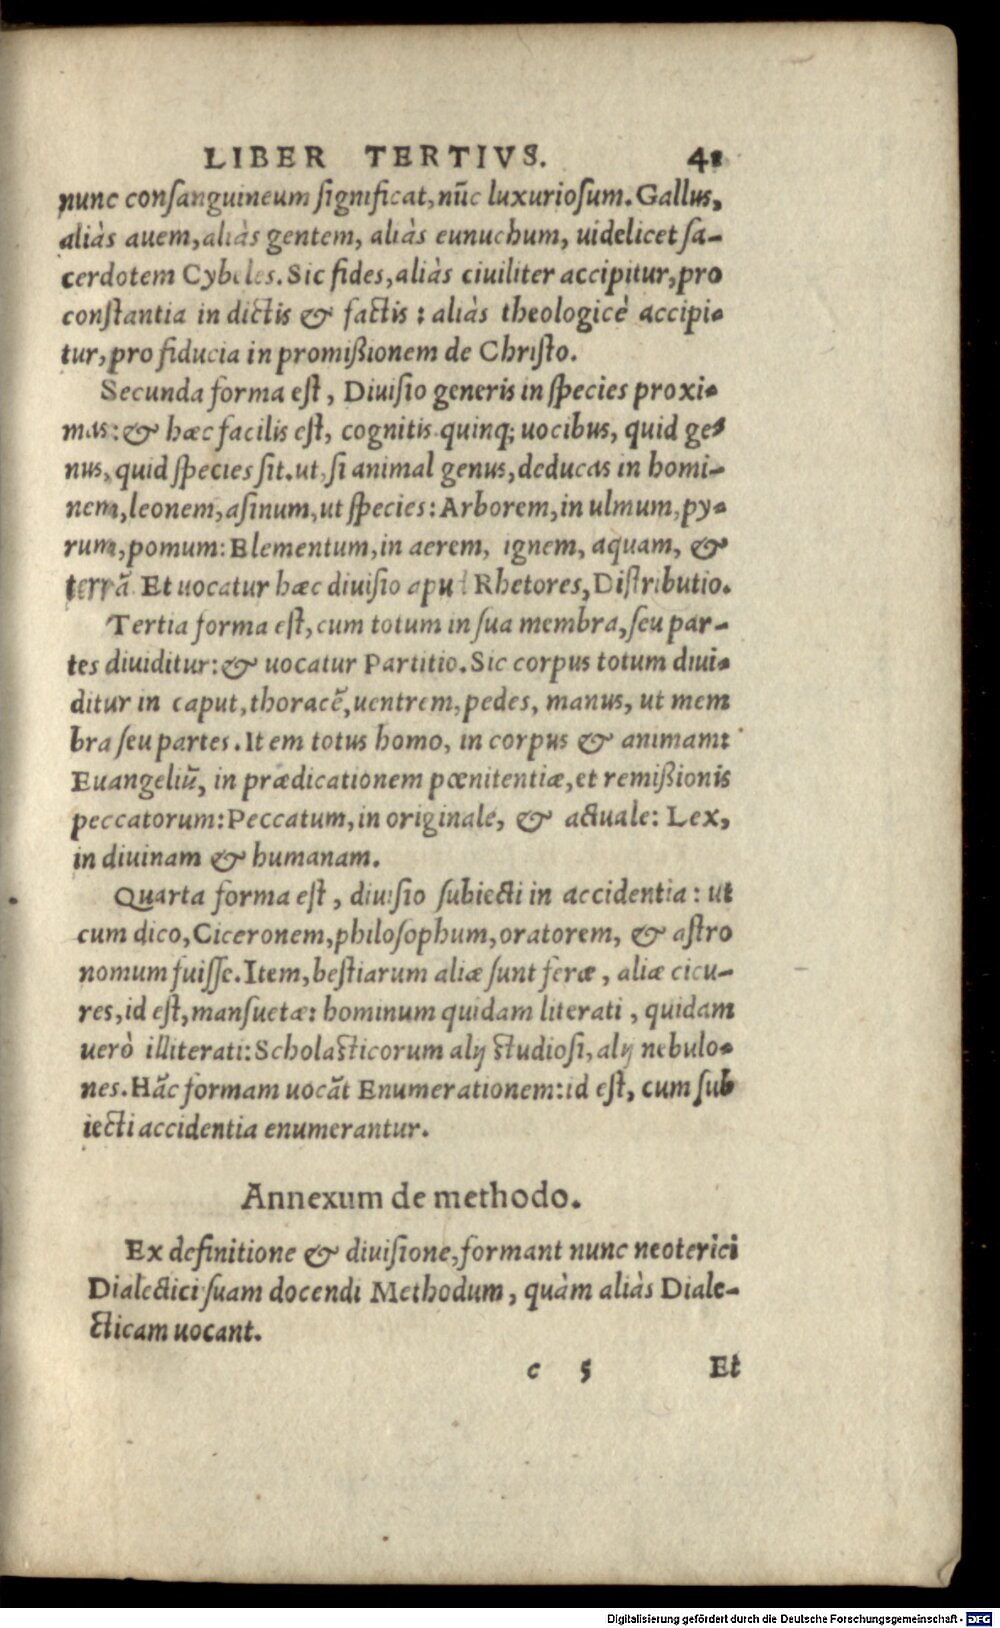 LIBER TERTIVS. 41
nunc consanguineum significat, nũc luxuriosum. Gallus,
aliàs auem, aliàs gentem, aliàs eunuchum, uidelicet sa-
cerdotem Cybeles. Sic fides, aliàs ciuiliter accipitur, pro
constantia in dictis & factis: aliàs theologicè accipi-
tur, pro fiducia in promißionem de Christo.
Secunda forma est, Diuisio generis in species proxi-
mas: & hæc facilis est, cognitis quinq; uocibus, quid ge-
nus, quid species sit. ut, si animal genus, deducas in homi-
nem, leonem, asinum, ut species: Arborem, in ulmum, py-
rum, pomum: Elementum, in aerem, ignem, aquam, &
terrã. Et uocatur hæc diuisio apud Rhetores, Distributio.
Tertia forma est, cum totum in sua membra, seu par-
tes diuiditur: & uocatur Partitio. Sic corpus totum diui-
ditur in caput, thoracẽ, uentrem, pedes, manus, ut mem
bra seu partes. Item totus homo, in corpus & animam:
Euangeliũ, in prædicationem pœnitentiæ, et remißionis
peccatorum: Peccatum, in originale, & actuale: Lex,
in diuinam & humanam.
Quarta forma est, diuisio subiecti in accidentia: ut
cum dico, Ciceronem, philosophum, oratorem, & astro
nomum fuisse. Item, bestiarum aliæ sunt feræ, aliæ cicu-
res, id est, mansuetæ: hominum quidam literati, quidam
uerò illiterati: Scholasticorum alij studiosi, alij nebulo-
nes. Hãc formam uocãt Enumerationem: id est, cum sub
iecti accidentia enumerantur.
Annexum de methodo.
Ex definitione & diuisione, formant nunc neoterici
Dialectici suam docendi Methodum, quàm aliàs Diale-
cticam uocant.
c 5 Et
Digitalisierung gefördert durch die Deutsche Forschungsgemeinschaft - DFG